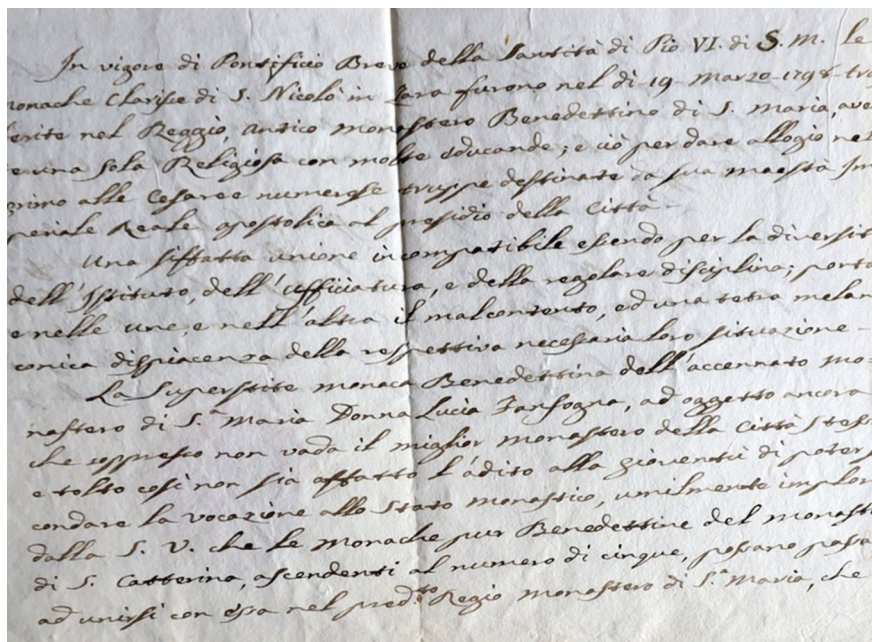 In vigore di Pontificio Breve della Santità di Pio VI. di S. M. le
monache Clarisse di S. Nicolò in Zara furono nel di 19 Marzo 1798 tra
ferite nel Reggio, antico monastero Benedettino di S. Maria, ave
una sola Religiosa con molte educande; e ciò per dare allogio nel
primo alle Cesaree numerose truppe destinate da sua maestà Im
periale Reale apostolica al presidio della Città
Una siffatta unione incompatibile essendo per la diversit
dell'Istituto, dell'ufficiatura, e della regolare disciplina; porta
e nelle une, e nell'altra il malcontento, ed una tetra melan
conica dispiacenza della respettiva necessaria loro situazione
La superstite monaca Benedettina dell'accennato mo=
nastero di S.a Maria Donna Lucia Fanfogna, ad oggetto ancora
che soppresso non vada il miglior monastero della Città stess
e tolto così non sia affatto l'ádito alla gioventù di poter s
condare la vocazione allo stato monastico, umilmente implor
dalla S. V. che le monache pur Benedettine del monast
di S. Catterina, ascendenti al numero di cinque, possano passa
ad unirsi con essa nel pred.to Regio monastero di S.a Maria, che